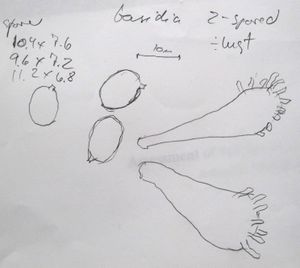 spore
10,4 x 7.6
9.6 x 7.2
11.2 x 6.8
basidia 2-spored
10m